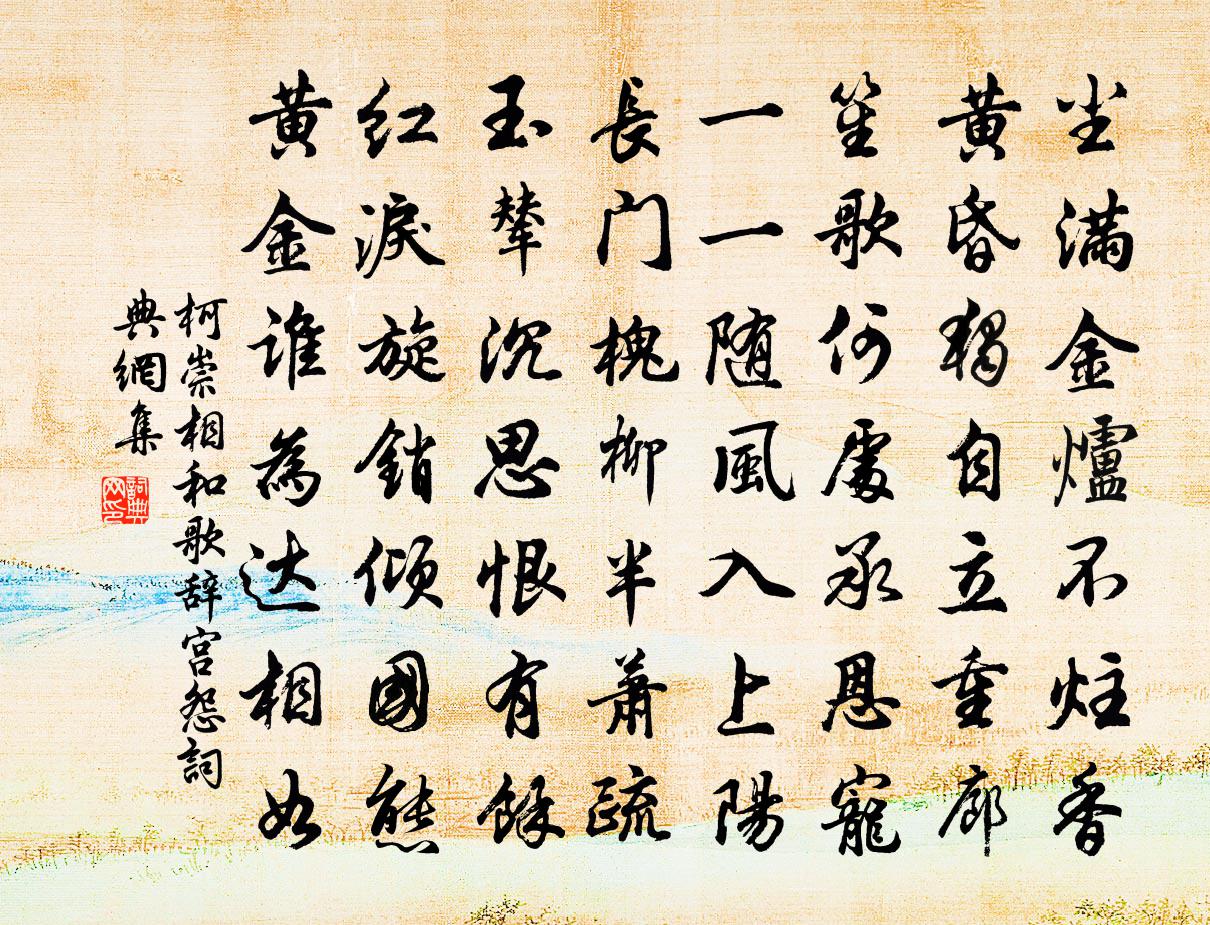 尘满金爐不炷香
黄昏獨自立重廊
笙歌何處承恩寵
一一随風入上陽
長門槐柳半蕭疏
玉輦沉思恨有餘
红淚旋銷傾國態
黄金誰為达相如
柯崇相和歌辞宫怨詞
典網集
詞典网印